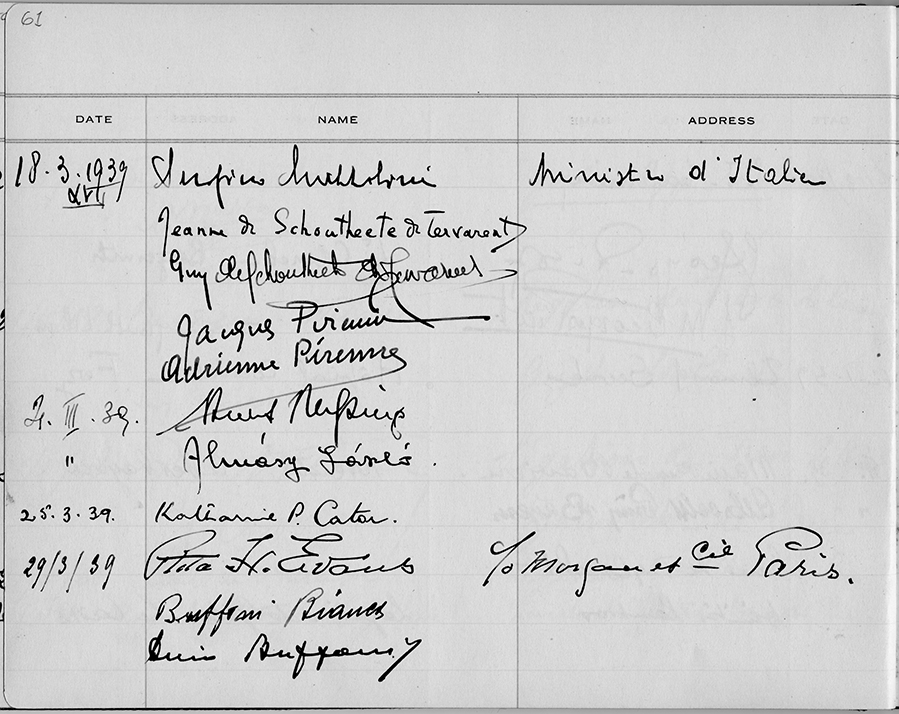 61
DATE NAME ADDRESS
18.3.1939 Serafino Mazzolini Ministro d'Italia
XVII
Jeanne de Schoutheete de Tervarent
Guy de Schoutheete de Tervarent
Jacques Pirenne
Adrienne Pirenne
2. III. 39.
" Almásy László.
25.3.39. Katharine P. Cator.
29/3/39 Rita H. Evans c/o Morgan et Cie Paris.
Buffoni Bianca
Buffoni